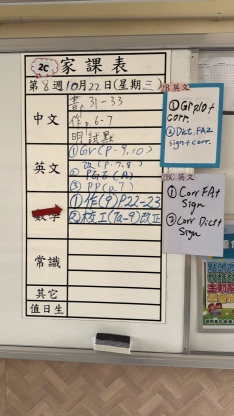 2C 家課表
第8週10月22日(星期三)
中文
書p.31-33
作p.6-7
明試點
英文
①Gr(p.9,10)
改(p.7,8)
②PG3(A)
③PP(p.7)
數學
①作(9)P.22-23
②校工(7a-9)改正
常識
其它
值日生
2B 英文
①Gr p10+
corr.
②Dict.FA2
sign+corr.
2BC 英文
①Corr FA+
Sign
②Corr Dict+
Sign